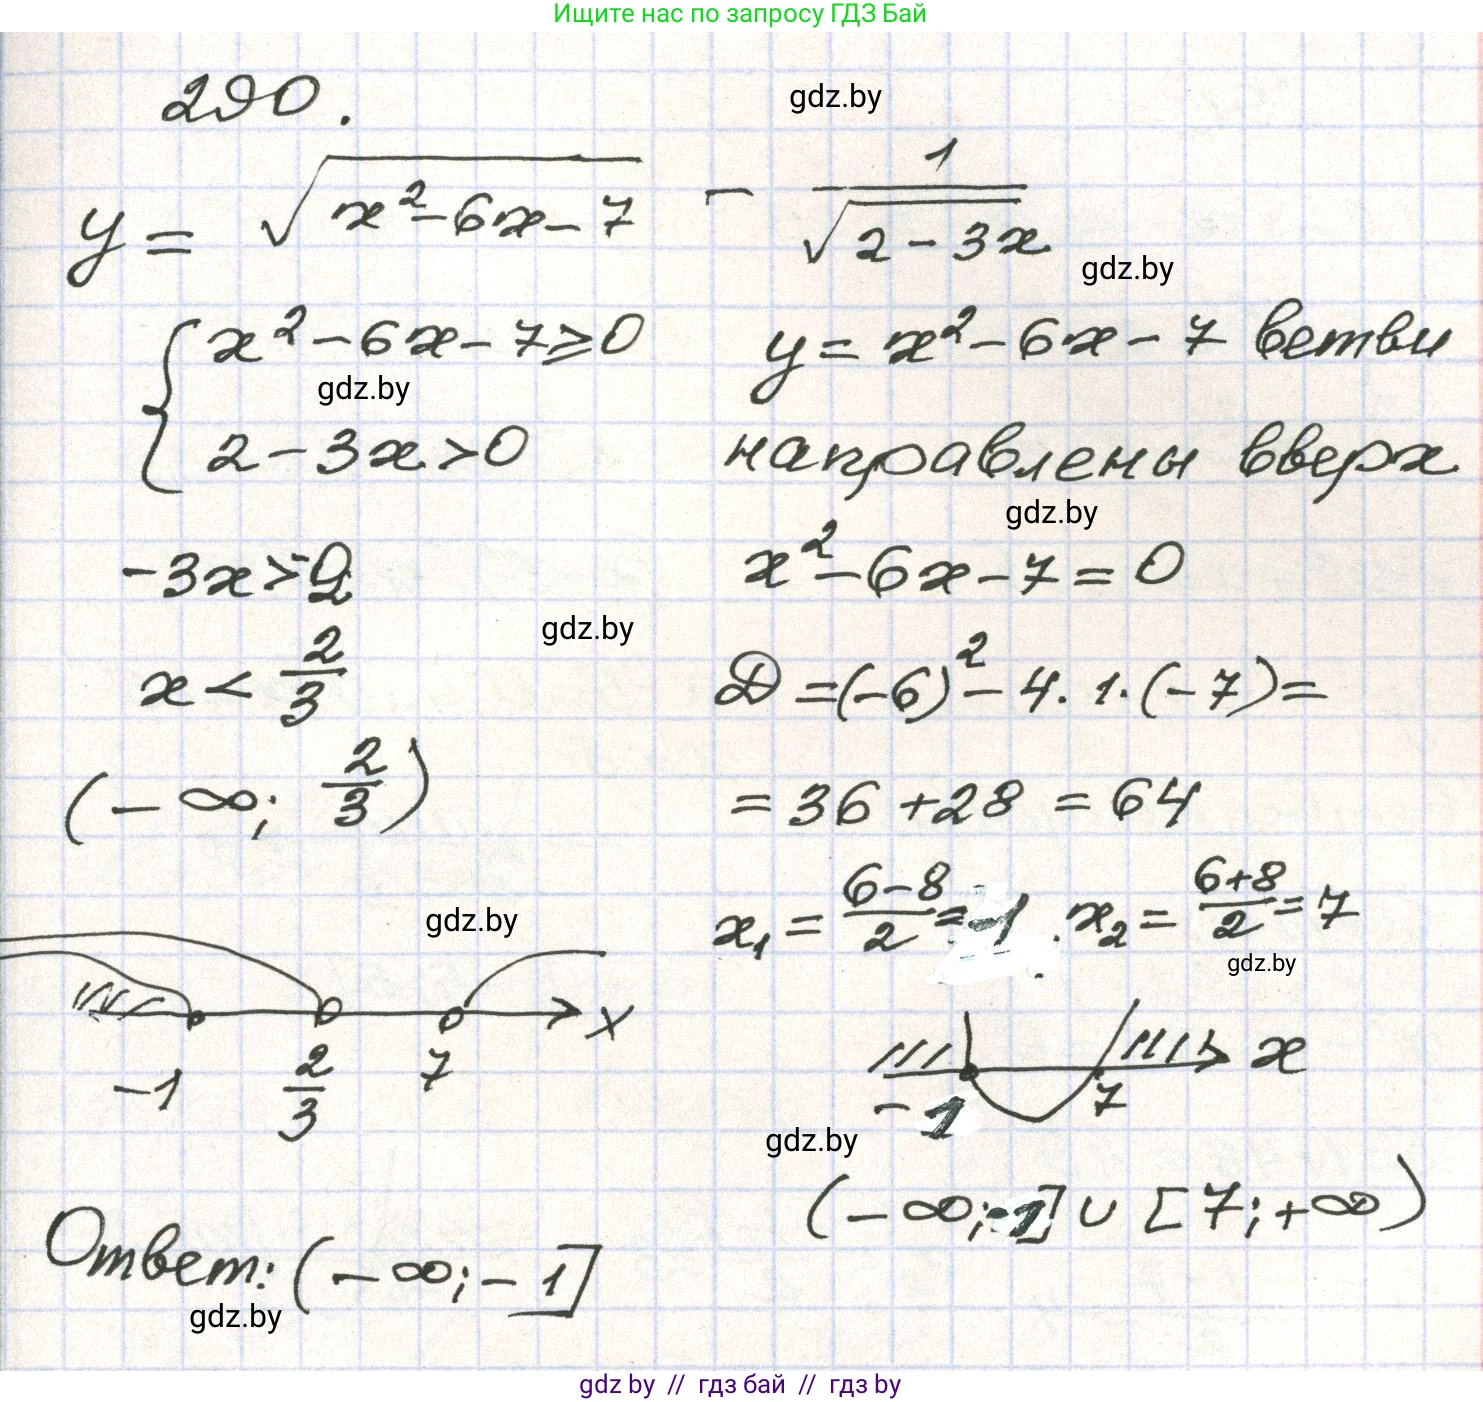 Ищите нас по запросу ГДЗ Бай
290.
gdz.by
y = √(x² - 6x - 7) - 1/√(2 - 3x)
gdz.by
{ x² - 6x - 7 ≥ 0
gdz.by
2 - 3x > 0
-3x > -2
gdz.by
x < 2/3
(-∞; 2/3)
y = x² - 6x - 7 ветви
направлены вверх
gdz.by
x² - 6x - 7 = 0
D = (-6)² - 4 · 1 · (-7) =
= 36 + 28 = 64
x₁ = (6-8)/2 = -1. x₂ = (6+8)/2 = 7
gdz.by
gdz.by
-1 2/3 7 x
-1 7 x
gdz.by
(-∞; -1] ∪ [7; +∞)
Ответ: (-∞; -1]
gdz.by
gdz by // гдз бай // гдз by